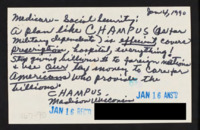 Jan 4, 1990
Medicare - Social Security:
A plan like CHAMPUS for
military dependents is efficient, covers
prescription, hospital, everything!
Stop giving billions to foreign nations
& use our tax money to care for
Americans who provide the
billions"
CHAMPUS.
Madison Wisconsin
JAN 16 REC'D
JAN 16 REC'D